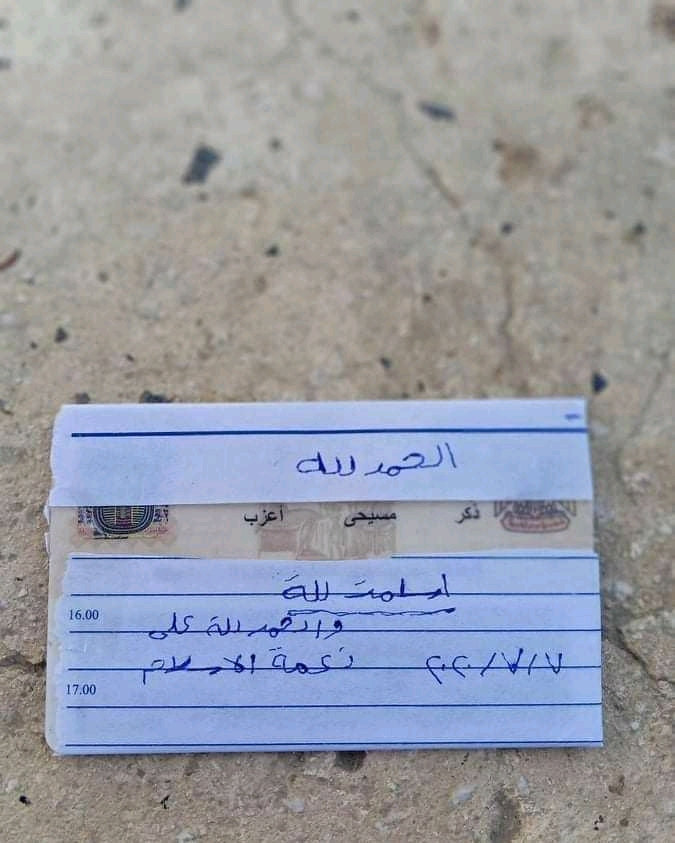 الحمد لله
ذكر مسيحى أعزب
اسلمت للة
16.00
والحمد للة على
نعمة الاسلام ٢٠٢٠/٧/٧
17.00